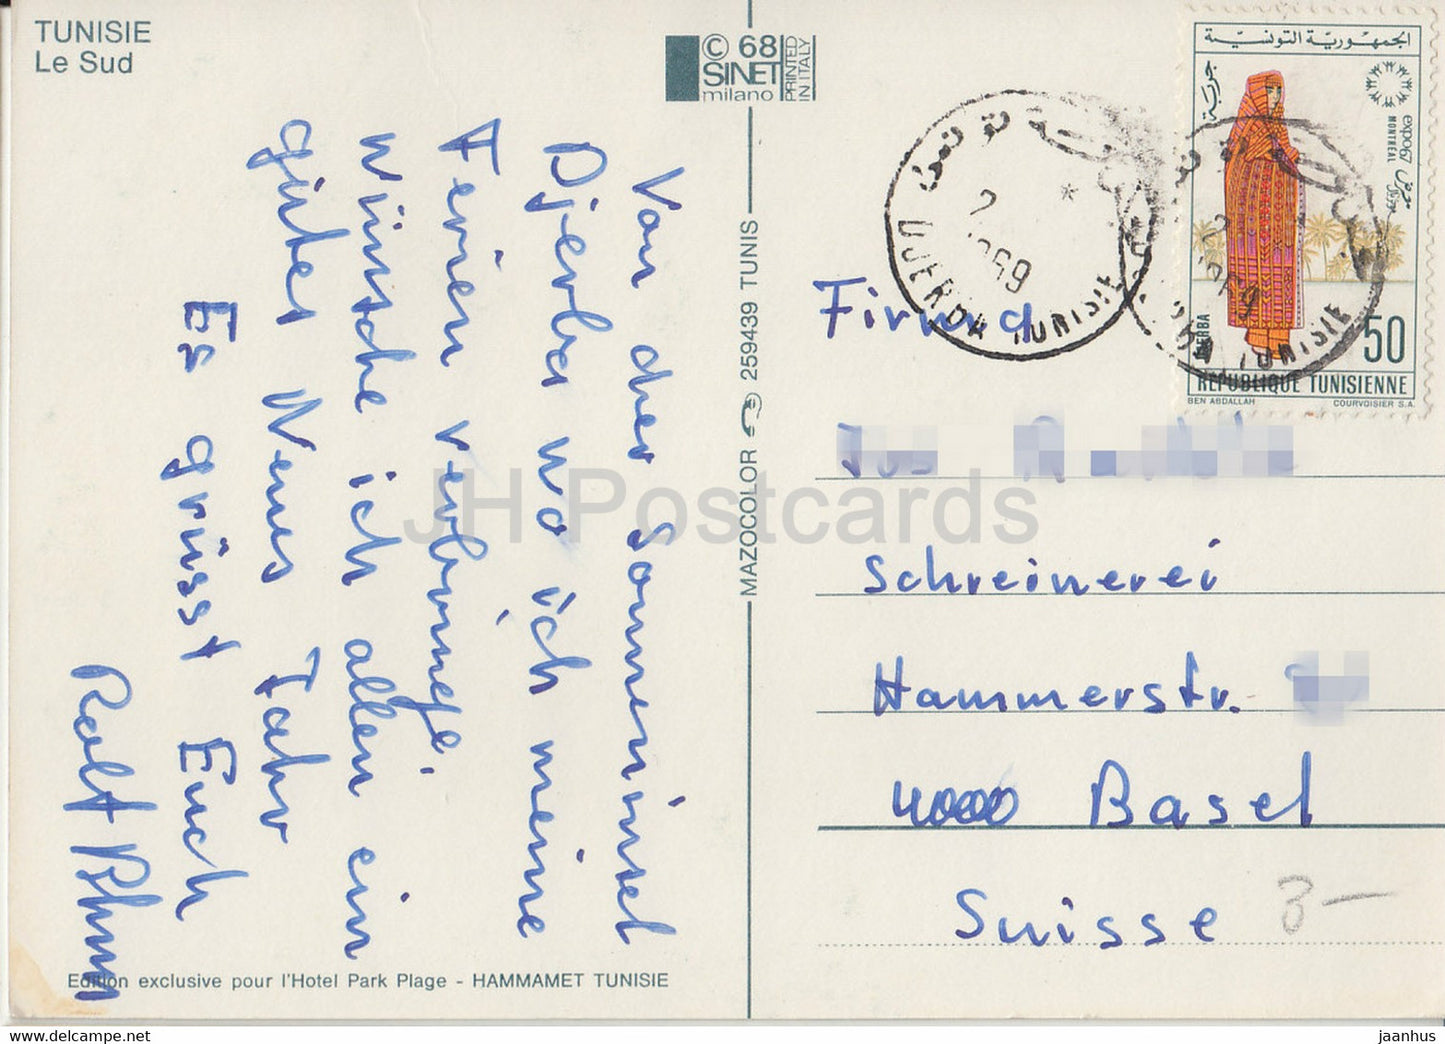 TUNISIE
Le Sud
© 68
SINET
milano
PRINTED
IN ITALY
Von der Sonneninsel
Djerba wo ich meine
Ferien verbringe,
wünsche ich allen ein
gutes Neues Jahr
Es grüsst Euch
Rolf
Edition exclusive pour l'Hotel Park Plage - HAMMAMET TUNISIE
MAZOCOLOR 259439 TUNIS
الجمهورية التونسية
جربة
expo67
MONTREAL
DJERBA
50
REPUBLIQUE TUNISIENNE
BEN ABDALLAH COURVOISIER S.A.
DJERBA TUNISIE
Firma
Schreinerei
Hammerstr.
4000 Basel
Suisse
3 —
JH Postcards
www.delcampe.net
jaanhus